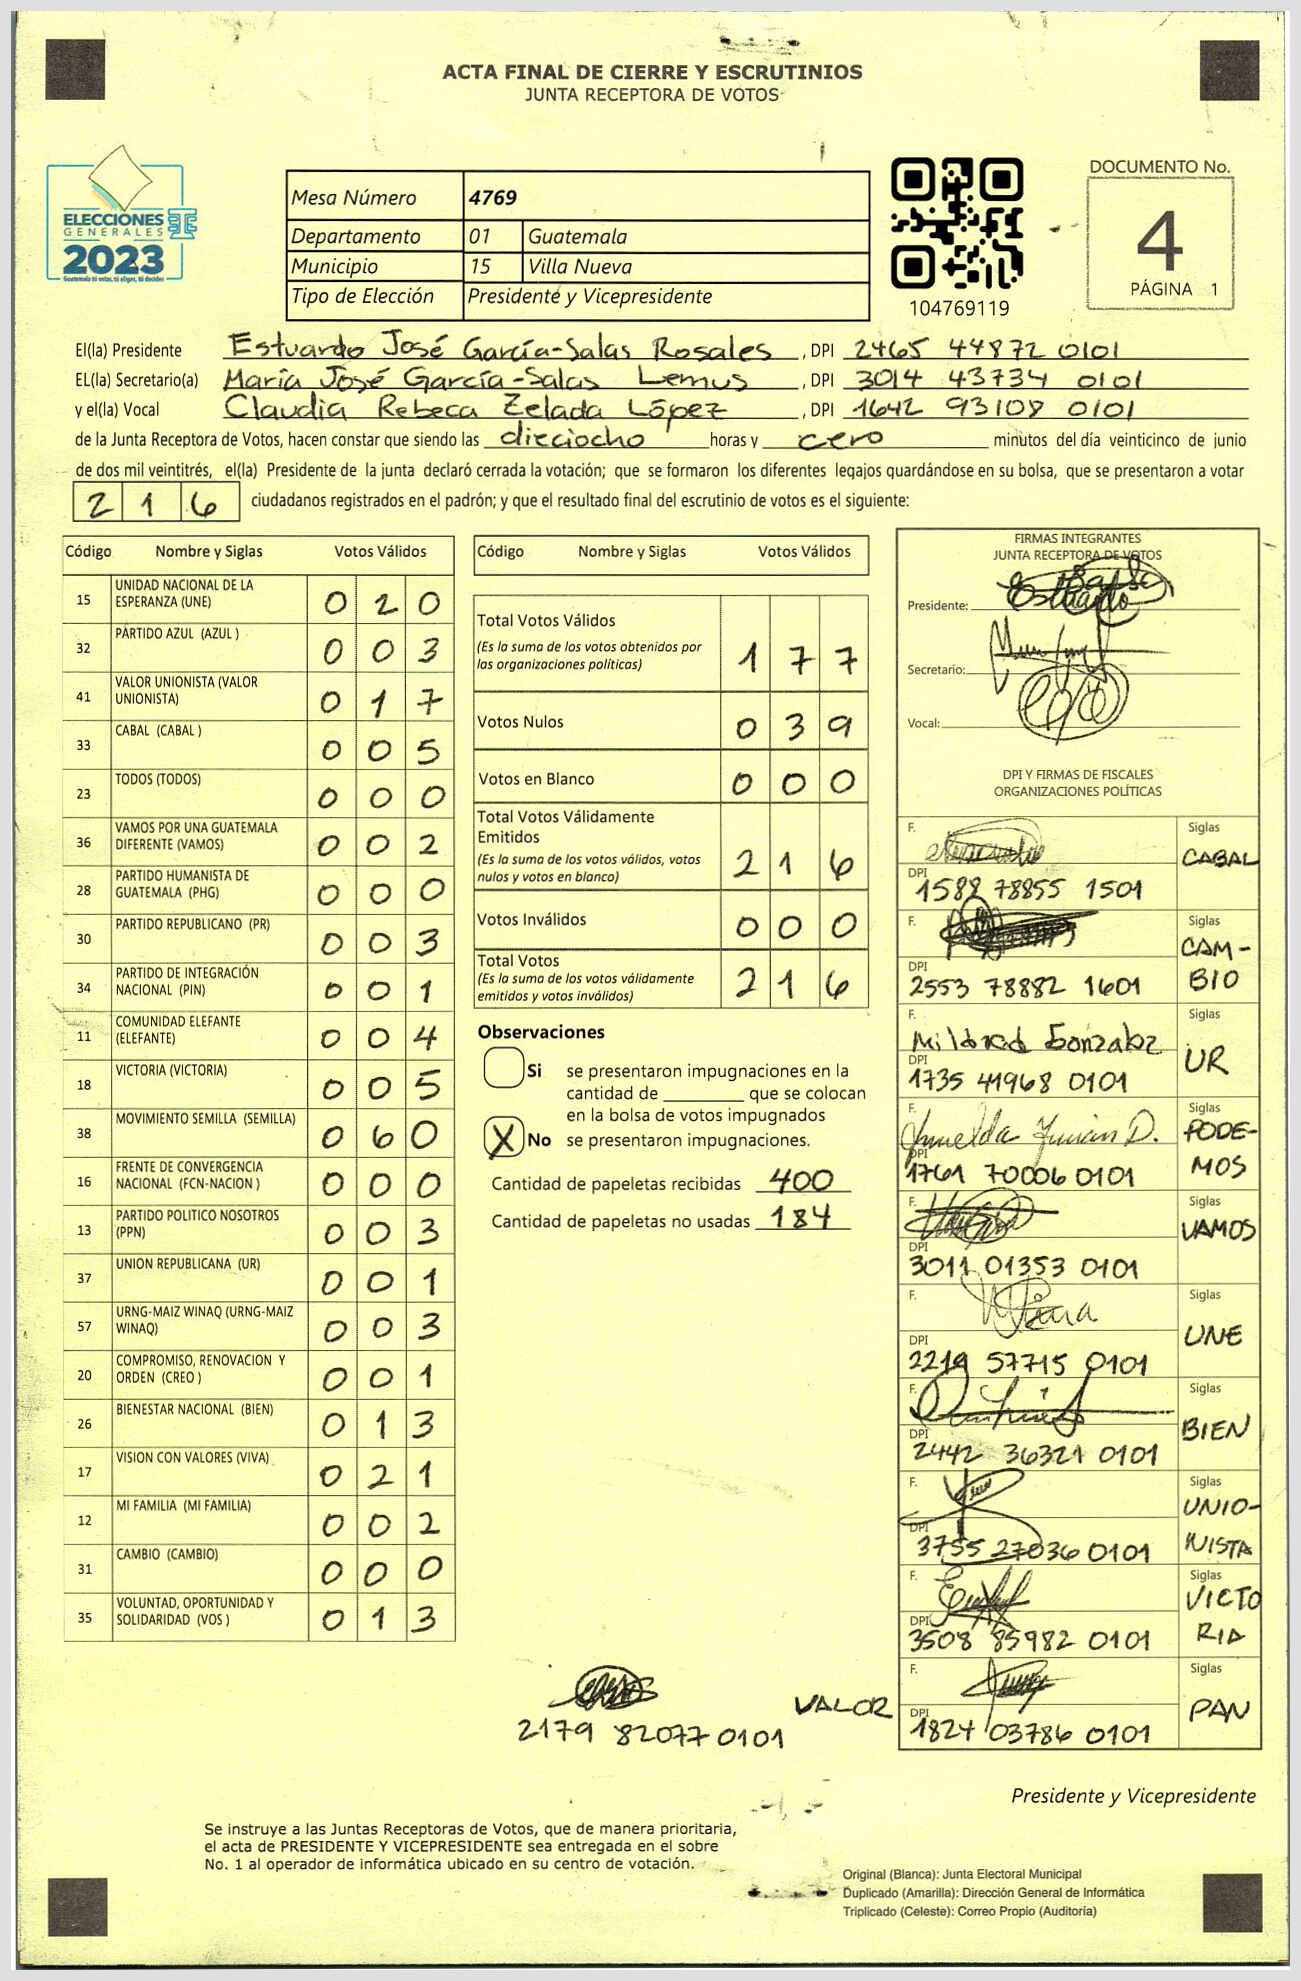 ACTA FINAL DE CIERRE Y ESCRUTINIOS
JUNTA RECEPTORA DE VOTOS
ELECCIONES
GENERALES
2023
Guatemala tú votas, tú eliges, tú decides
Mesa Número 4769
Departamento 01 Guatemala
Municipio 15 Villa Nueva
Tipo de Elección Presidente y Vicepresidente
104769119
DOCUMENTO No.
4
PÁGINA 1
El(la) Presidente Estuardo José García-Salas Rosales, DPI 2465 44872 0101
EL(la) Secretario(a) María José García-Salas Lemus, DPI 3014 43734 0101
y el(la) Vocal Claudia Rebeca Zelada López, DPI 1642 93108 0101
de la Junta Receptora de Votos, hacen constar que siendo las dieciocho horas y cero minutos del día veinticinco de junio
de dos mil veintitrés, el(la) Presidente de la junta declaró cerrada la votación; que se formaron los diferentes legajos quardándose en su bolsa, que se presentaron a votar
216 ciudadanos registrados en el padrón; y que el resultado final del escrutinio de votos es el siguiente:
Código Nombre y Siglas Votos Válidos
15 UNIDAD NACIONAL DE LA ESPERANZA (UNE) 020
32 PARTIDO AZUL (AZUL ) 003
41 VALOR UNIONISTA (VALOR UNIONISTA) 017
33 CABAL (CABAL ) 005
23 TODOS (TODOS) 000
36 VAMOS POR UNA GUATEMALA DIFERENTE (VAMOS) 002
28 PARTIDO HUMANISTA DE GUATEMALA (PHG) 000
30 PARTIDO REPUBLICANO (PR) 003
34 PARTIDO DE INTEGRACIÓN NACIONAL (PIN) 001
11 COMUNIDAD ELEFANTE (ELEFANTE) 004
18 VICTORIA (VICTORIA) 005
38 MOVIMIENTO SEMILLA (SEMILLA) 060
16 FRENTE DE CONVERGENCIA NACIONAL (FCN-NACION ) 000
13 PARTIDO POLITICO NOSOTROS (PPN) 003
37 UNION REPUBLICANA (UR) 001
57 URNG-MAIZ WINAQ (URNG-MAIZ WINAQ) 003
20 COMPROMISO, RENOVACION Y ORDEN (CREO ) 001
26 BIENESTAR NACIONAL (BIEN) 013
17 VISION CON VALORES (VIVA) 021
12 MI FAMILIA (MI FAMILIA) 002
31 CAMBIO (CAMBIO) 000
35 VOLUNTAD, OPORTUNIDAD Y SOLIDARIDAD (VOS ) 013
Código Nombre y Siglas Votos Válidos
Total Votos Válidos
(Es la suma de los votos obtenidos por
las organizaciones políticas) 177
Votos Nulos 039
Votos en Blanco 000
Total Votos Válidamente
Emitidos
(Es la suma de los votos válidos, votos
nulos y votos en blanco) 216
Votos Inválidos 000
Total Votos
(Es la suma de los votos válidamente
emitidos y votos inválidos) 216
Observaciones
Si se presentaron impugnaciones en la
cantidad de ________ que se colocan
en la bolsa de votos impugnados
X No se presentaron impugnaciones.
Cantidad de papeletas recibidas 400
Cantidad de papeletas no usadas 184
FIRMAS INTEGRANTES
JUNTA RECEPTORA DE VOTOS
Presidente:
Secretario:
Vocal:
DPI Y FIRMAS DE FISCALES
ORGANIZACIONES POLÍTICAS
F. Siglas
CABAL
DPI 1588 78855 1501
F. Siglas
CAM-
BIO
DPI 2553 78882 1601
F. Mildred Gonzalez Siglas
UR
DPI 1735 41968 0101
F. Siglas
PODE-
MOS
DPI 1761 70006 0101
F. Siglas
VAMOS
DPI 3011 01353 0101
F. Siglas
UNE
DPI 2219 57715 0101
F. Siglas
BIEN
DPI 2442 36321 0101
F. Siglas
UNIO-
NISTA
DPI 3755 27036 0101
F. Siglas
VICTO
RIA
DPI 3508 85982 0101
F. Siglas
PAN
DPI 1824 03786 0101
VALOR
2179 82077 0101
Presidente y Vicepresidente
Se instruye a las Juntas Receptoras de Votos, que de manera prioritaria,
el acta de PRESIDENTE Y VICEPRESIDENTE sea entregada en el sobre
No. 1 al operador de informática ubicado en su centro de votación.
Original (Blanca): Junta Electoral Municipal
Duplicado (Amarilla): Dirección General de Informática
Triplicado (Celeste): Correo Propio (Auditoría)